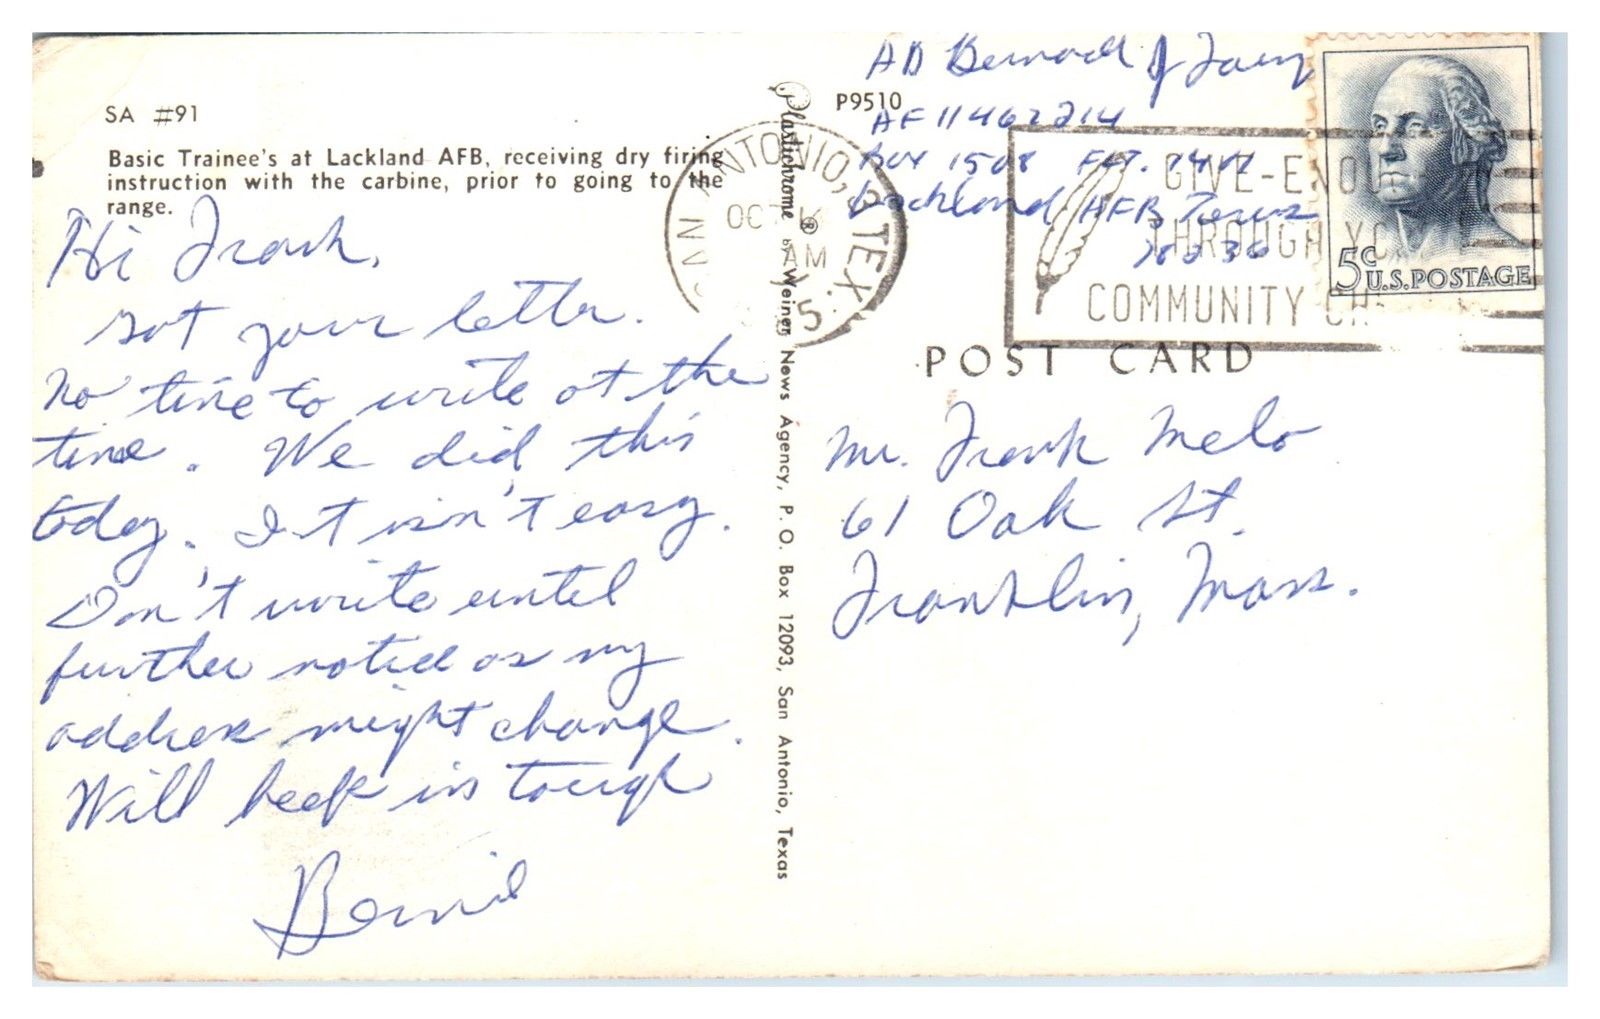 SA #91
Basic Trainee's at Lackland AFB, receiving dry firing
instruction with the carbine, prior to going to the
range.
Hi Frank,
Got your letter.
No time to write at the
time. We did this
today. It isn't easy.
Don't write until
further notice as my
address might change.
Will keep in touch
Bernie
Plastichrome ® by Weiner News Agency, P. O. Box 12093, San Antonio, Texas
P9510
AB Bernard J
AF 11462214
Box 1508 FLT.
Lackland AFB Texas
78236
SAN ANTONIO, TEX.
OCT
AM
GIVE-ENOUGH
THROUGH YO
COMMUNITY CH
5c U.S. POSTAGE
POST CARD
Mr. Frank Melo
61 Oak St.
Franklin, Mass.